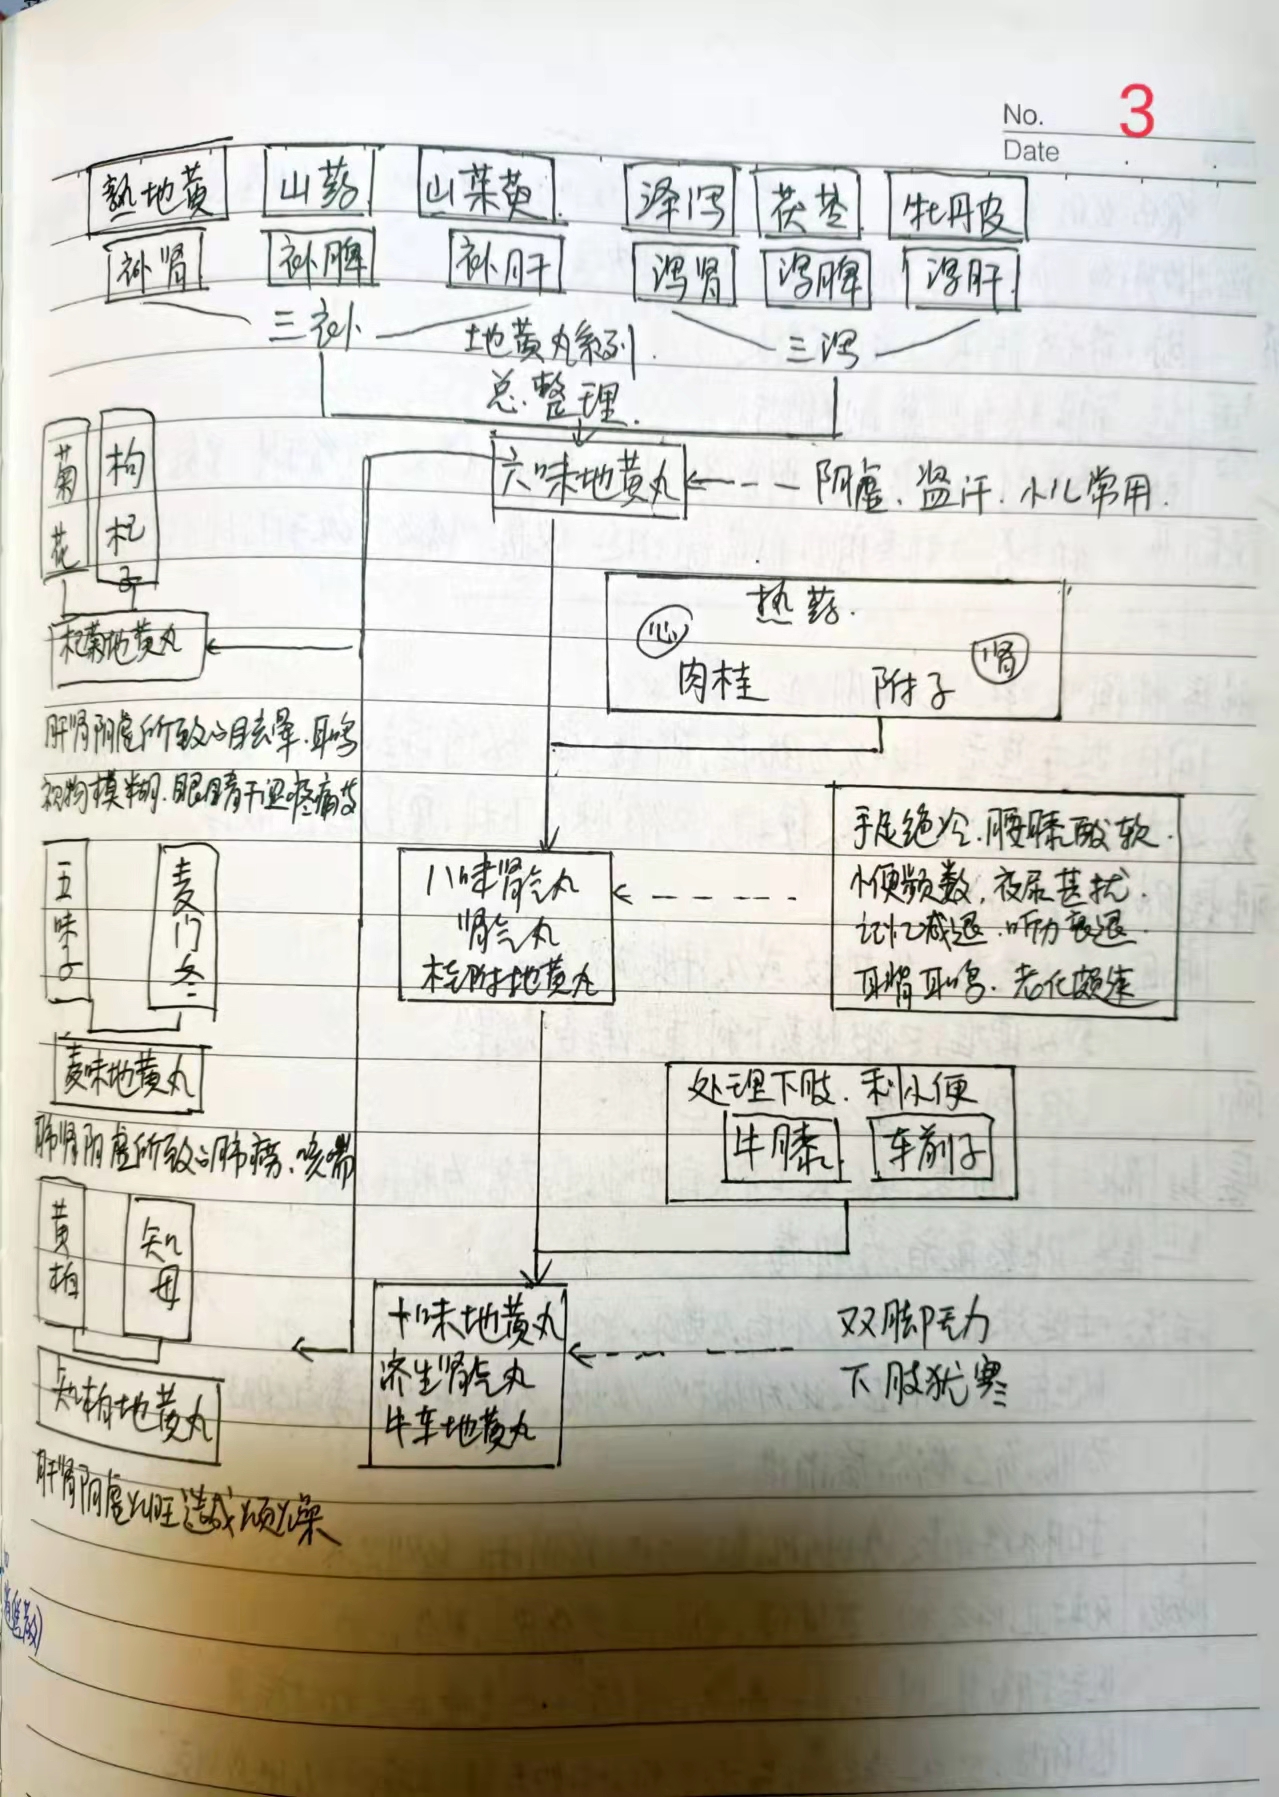 No. 3
Date
熟地黄 山药 山茱萸 泽泻 茯苓 牡丹皮
补肾 补脾 补肝 泻肾 泻脾 泻肝
三补 三泻
地黄丸系列
总整理
六味地黄丸
阴虚、盗汗、小儿常用
菊花 枸杞子
杞菊地黄丸
肝肾阴虚所致的目眩晕、耳鸣
视物模糊、眼睛干涩疼痛等
热药
心 肾
肉桂 附子
手足绝冷、腰膝酸软
小便频数,夜尿甚扰
记忆减退、听力衰退
耳聋 耳鸣、老化颇速
八味肾气丸
肾气丸
桂附地黄丸
五味子 麦门冬
麦味地黄丸
肺肾阴虚所致的肺痨、咳喘
处理下肢、利小便
牛膝 车前子
黄柏 知母
知柏地黄丸
肝肾阴虚火旺造成烦燥
十味地黄丸
济生肾气丸
牛车地黄丸
双脚无力
下肢犹寒